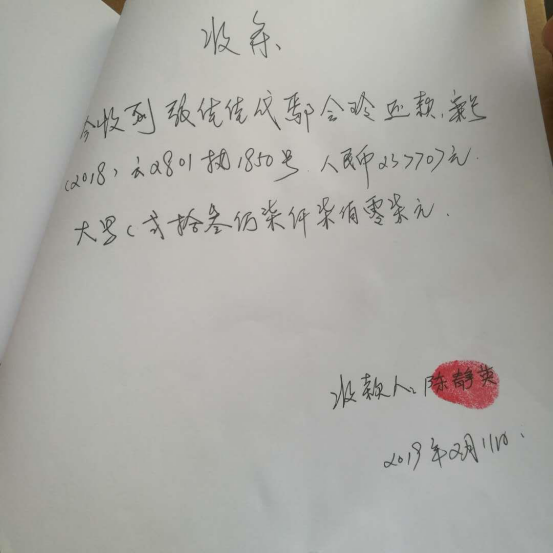 收条
今收到张佳佳代鄢会玲还款,案号
(2018)云2801执1850号.人民币237707元.
大写(贰拾叁万柒仟柒佰零柒元.
收款人:陈静英
2019年2月11日.